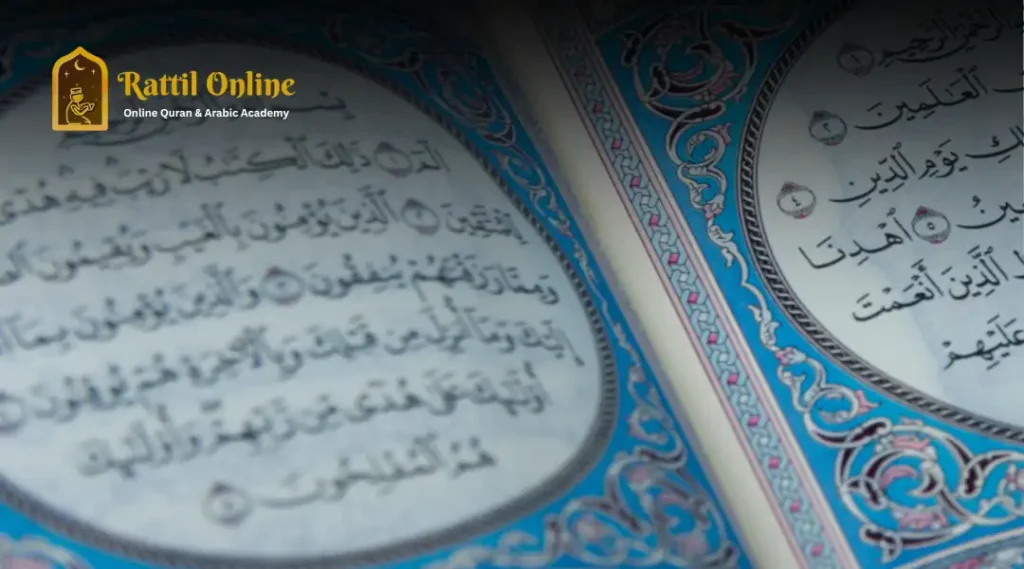 Rattil Online
Online Quran & Arabic Academy
ٱلرَّحِيمِ ١
ٱلْعَٰلَمِينَ ٢
يَوْمِ ٱلدِّينِ ٤
٥ ٱهْدِنَا
ٱلَّذِينَ أَنْعَمْتَ
عَلَيْهِمْ
الٓمٓ ١ ذَٰلِكَ ٱلْكِتَٰبُ لَا رَيْبَ فِيهِ هُدًى
لِّلْمُتَّقِينَ ٢ ٱلَّذِينَ يُؤْمِنُونَ بِٱلْغَيْبِ وَيُقِيمُونَ
وَمِمَّا رَزَقْنَٰهُمْ يُنفِقُونَ ٣ وَٱلَّذِينَ يُؤْمِنُونَ بِمَآ
إِلَيْكَ وَمَآ أُنزِلَ مِن قَبْلِكَ وَبِٱلْءَاخِرَةِ هُمْ يُوقِنُونَ
أُو۟لَٰٓئِكَ عَلَىٰ هُدًى مِّن رَّبِّهِمْ وَأُو۟لَٰٓئِكَ
هُمُ ٱلْمُفْلِحُونَ ٥